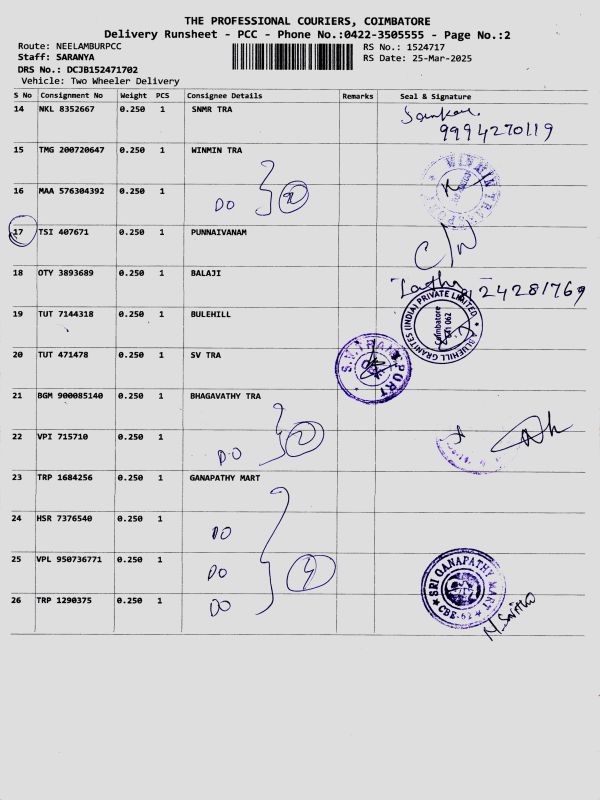 THE PROFESSIONAL COURIERS, COIMBATORE
Delivery Runsheet - PCC - Phone No.:0422-3505555 - Page No.:2
Route: NEELAMBURPCC RS No.: 1524717
Staff: SARANYA RS Date: 25-Mar-2025
DRS No.: DCJB152471702
Vehicle: Two Wheeler Delivery
S No Consignment No Weight PCS Consignee Details Remarks Seal & Signature
14 NKL 8352667 0.250 1 SNMR TRA
9994270119
15 TMG 200720647 0.250 1 WINMIN TRA
WINMIN TRANSPORT
16 MAA 576304392 0.250 1 DO 2
17 TSI 407671 0.250 1 PUNNAIVANAM C/N
18 OTY 3893689 0.250 1 BALAJI 24281769
19 TUT 7144318 0.250 1 BULEHILL
BLUEHILL GRANITES (INDIA) PRIVATE LIMITED
Coimbatore
641 062
20 TUT 471478 0.250 1 SV TRA
S.V.TRANSPORT
21 BGM 900085140 0.250 1 BHAGAVATHY TRA
22 VPI 715710 0.250 1 DO 2
23 TRP 1684256 0.250 1 GANAPATHY MART
24 HSR 7376540 0.250 1 DO
25 VPL 950736771 0.250 1 DO 4
26 TRP 1290375 0.250 1 DO
SRI GANAPATHY MART
CBE-62